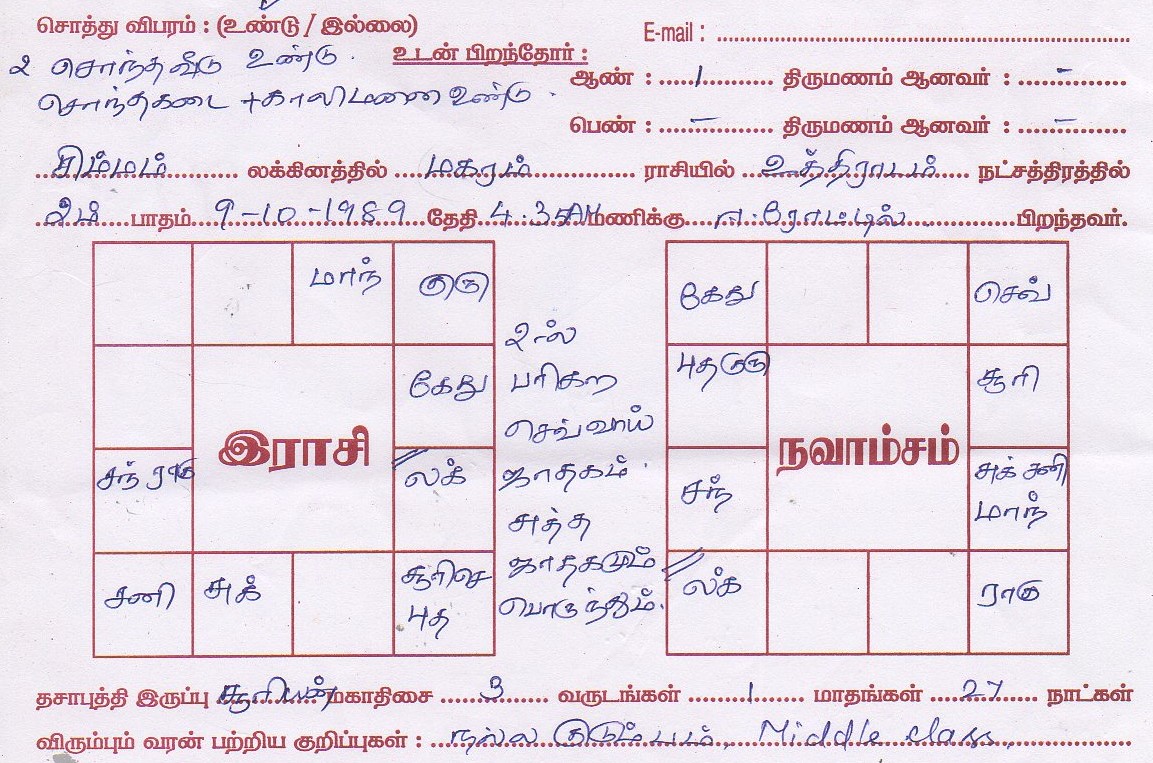 சொத்து விபரம் : (உண்டு / இல்லை)
E-mail : ..........
2 சொந்த வீடு உண்டு.
உடன் பிறந்தோர் :
ஆண் : ..... 1 ..... திருமணம் ஆனவர் : ... - ...
சொந்தகடை + காலிமனை உண்டு.
பெண் : ... - ... திருமணம் ஆனவர் : ... - ...
சிம்மம் லக்கினத்தில் மகரம் ராசியில் உத்திராடம் நட்சத்திரத்தில்
2ம் பாதம் 9-10-1989 தேதி 4:35AM மணிக்கு ஈரோட்டில் பிறந்தவர்.
மாந் குரு
கேது
இராசி
சந் ராகு லக்
சனி சுக் சூரி செ
புத
2-ல்
பரிகார
செவ்வாய்
ஜாதகம்.
சுத்த
ஜாதகமும்
பொருந்தும்.
கேது செவ்
புத குரு சூரி
நவாம்சம்
சந் சுக் சனி
மாந்
லக் ராகு
தசாபுத்தி இருப்பு சூரியன் மகாதிசை 3 வருடங்கள் 1 மாதங்கள் 27 நாட்கள்
விரும்பும் வரன் பற்றிய குறிப்புகள் : நல்ல குடும்பம், Middle class.